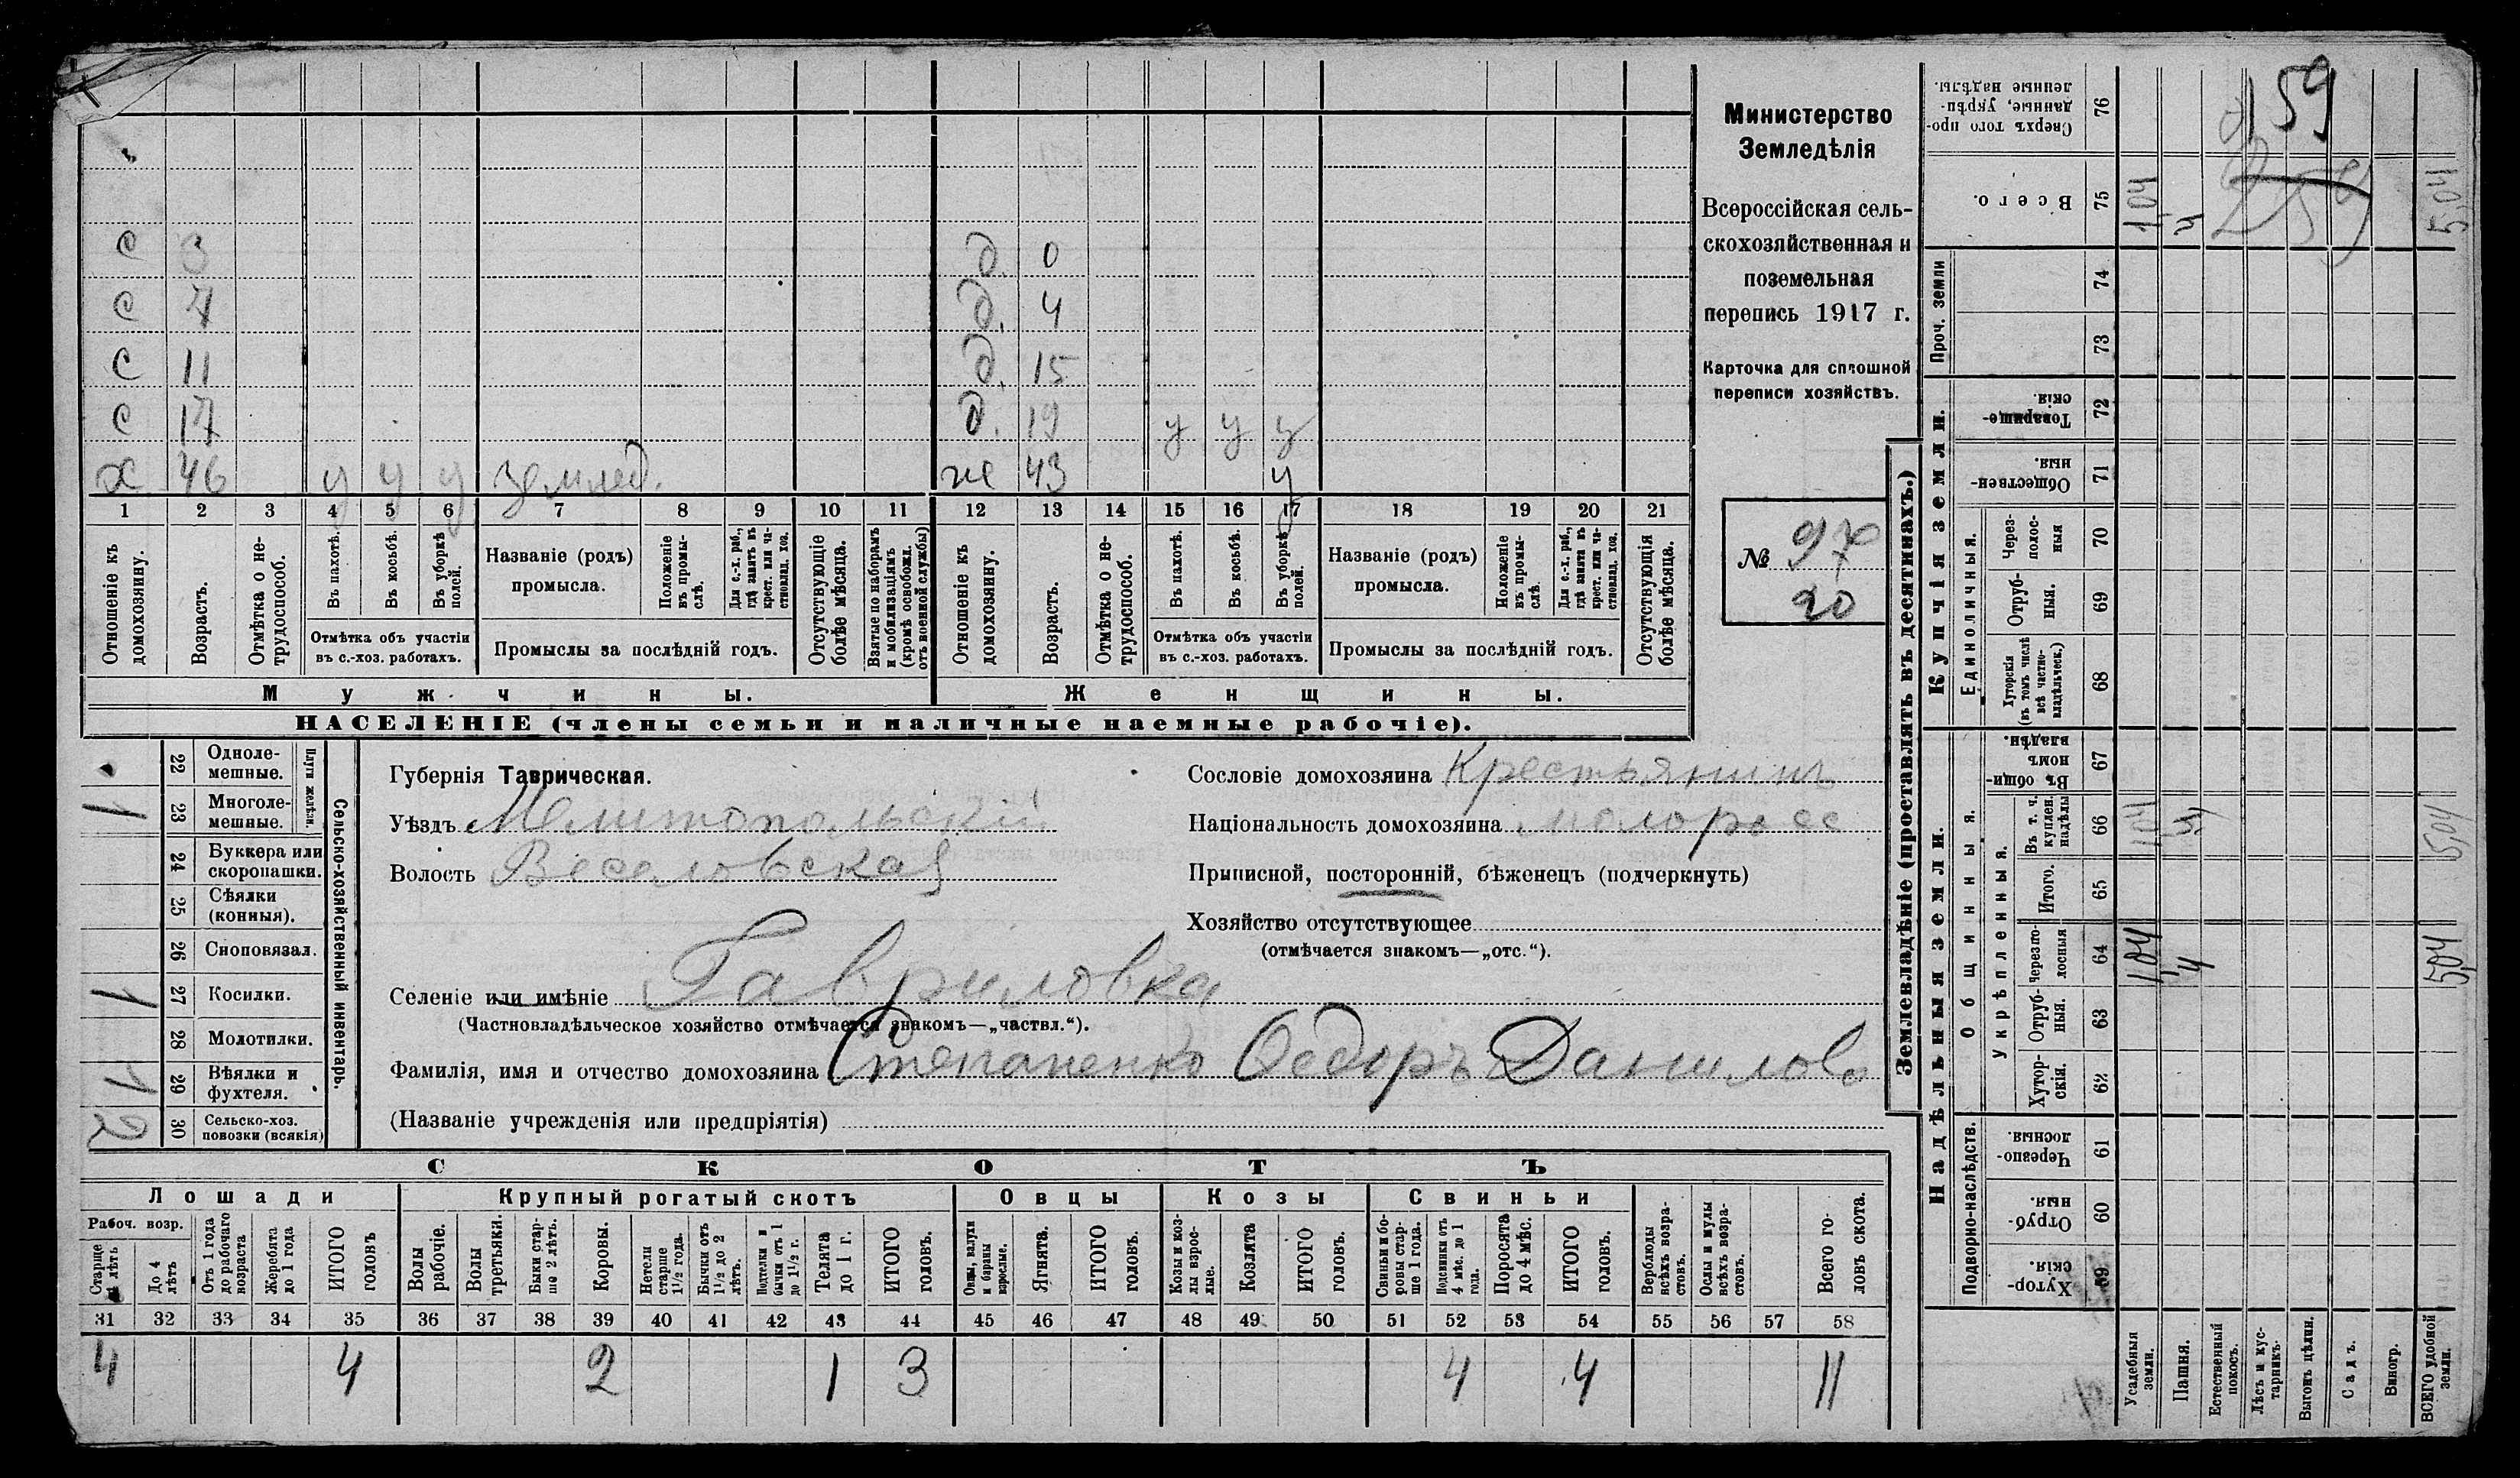 159
259
Министерство
Земледѣлія
Всероссійская сель-
скохозяйственная и
поземельная
перепись 1917 г.
Карточка для сплошной
переписи хозяйствъ.
№ 97
20
С 3 д. 0
С 7 д. 4
С 11 д. 15
С 17 д. 19 у у у
Х 46 у у у землед. же 43 у
1 2 3 4 5 6 7 8 9 10 11 12 13 14 15 16 17 18 19 20 21
Отношеніе къ домохозяину.
Возрастъ.
Отмѣтка о не-трудоспособ.
Въ пахотѣ.
Въ косьбѣ.
Въ уборкѣ полей.
Отмѣтка объ участіи
въ с.-хоз. работахъ.
Названіе (родъ)
промысла.
Положеніе въ промы-слѣ.
Для с.-х. раб., гдѣ занятъ въ крест. или ча-стновлад. хоз.
Промыслы за послѣдній годъ.
Отсутствующіе болѣе мѣсяца.
Взятые по наборамъ и мобилизаціямъ (кромѣ освобожд. отъ военной службы)
Отношеніе къ домохозяину.
Возрастъ.
Отмѣтка о не-трудоспособ.
Въ пахотѣ.
Въ косьбѣ.
Въ уборкѣ полей.
Отмѣтка объ участіи
въ с.-хоз. работахъ.
Названіе (родъ)
промысла.
Положеніе въ промы-слѣ.
Для с.-х. раб., гдѣ занятъ въ крест. или ча-стновлад. хоз.
Промыслы за послѣдній годъ.
Отсутствующія болѣе мѣсяца.
Мужчины. Женщины.
НАСЕЛЕНІЕ (члены семьи и наличные наемные рабочіе).
Сельско-хозяйственный инвентарь.
Плуги желѣзн.
22 Одноле-мешные.
1 23 Многоле-мешные.
24 Буккера или скоропашки.
25 Сѣялки (конныя).
26 Сноповязал.
1 27 Косилки.
28 Молотилки.
1 29 Вѣялки и фухтеля.
2 30 Сельско-хоз. повозки (всякія)
Губернія Таврическая.
Уѣздъ Мелитопольскій
Волость Веселовская
Сословіе домохозяина Крестьянинъ
Національность домохозяина малоросс
Приписной, посторонній, бѣженецъ (подчеркнуть)
Хозяйство отсутствующее
(отмѣчается знакомъ—„отс.“).
Селеніе или имѣніе Гавриловка
(Частновладѣльческое хозяйство отмѣчается знакомъ—„частвл.“).
Фамилія, имя и отчество домохозяина Степаненко Ѳедоръ Данилово
(Названіе учрежденія или предпріятія)
СКОТЪ
Лошади Крупный рогатый скотъ Овцы Козы Свиньи
Рабоч. возр.
Старше 4 лѣтъ
До 4 лѣтъ
Отъ 1 года до рабочаго возраста
Жеребята до 1 года
ИТОГО головъ
Волы рабочіе.
Волы третьяки.
Быки стар-ше 2 лѣтъ.
Коровы.
Нетели старше 1½ года.
Бычки отъ 1½ до 2 лѣтъ.
Подтелки и бычки отъ 1 до 1½ г.
Телята до 1 г.
ИТОГО головъ.
Овцы, валухи и бараны взрослые.
Ягнята.
ИТОГО головъ.
Козы и коз-лы взрос-лые.
Козлята
ИТОГО головъ.
Свиньи и бо-ровы стар-ше 1 года.
Подсвинки отъ 4 мѣс. до 1 года.
Поросята до 4 мѣс.
ИТОГО головъ.
Верблюды всѣхъ возра-стовъ.
Ослы и мулы всѣхъ возра-стовъ.
Всего го-ловъ скота.
31 32 33 34 35 36 37 38 39 40 41 42 43 44 45 46 47 48 49 50 51 52 53 54 55 56 57 58
4 4 2 1 3 4 4 11
Землевладѣніе (проставлять въ десятинахъ.)
Надѣльныя земли. Купчія земли. Проч. земли
Подворно-наслѣдств.
Общинныя.
Укрѣпленныя.
Единоличныя.
59 Хутор-скія.
60 Отруб-ныя.
61 Черезпо-лосныя.
62 Хутор-скія.
63 Отруб-ныя.
64 Черезпо-лосныя 1,04 4 5,04
65 Итого.
66 Въ т. ч. куплен. надѣлы 1,04 4 5,04
67 Въ общи-номъ владѣн.
68 Хуторскія (въ томъ числѣ всѣ частно-владѣльческ.)
69 Отруб-ныя.
70 Через-полос-ныя
71 Обществен-ныя.
72 Товарище-скія.
73
74
75 Всего. 1,04 4 5,04
76 Сверхъ того про-данные, укрѣп-ленные надѣлы.
Усадебныя земли.
Пашня.
Естественный покосъ.
Лѣсъ и кус-тарникъ.
Выгонъ цѣлин.
Садъ.
Виногр.
ВСЕГО удобной земли.